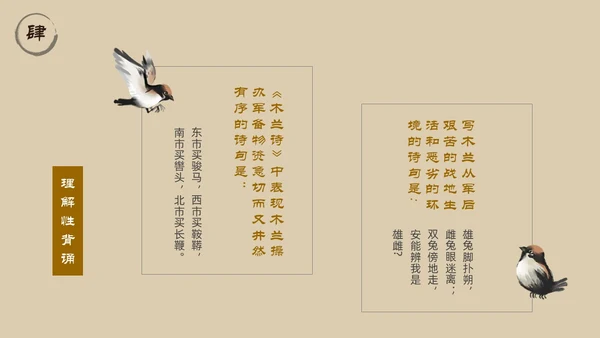 肆
理解性背诵
《木兰诗》中表现木兰操
办军备物资急切而又井然
有序的诗句是:
东市买骏马,西市买鞍鞯,
南市买辔头,北市买长鞭。
写木兰从军后
艰苦的战地生
活和恶劣的环
境的诗句是:
雄兔脚扑朔,
雌兔眼迷离;
双兔傍地走,
安能辨我是
雄雌?